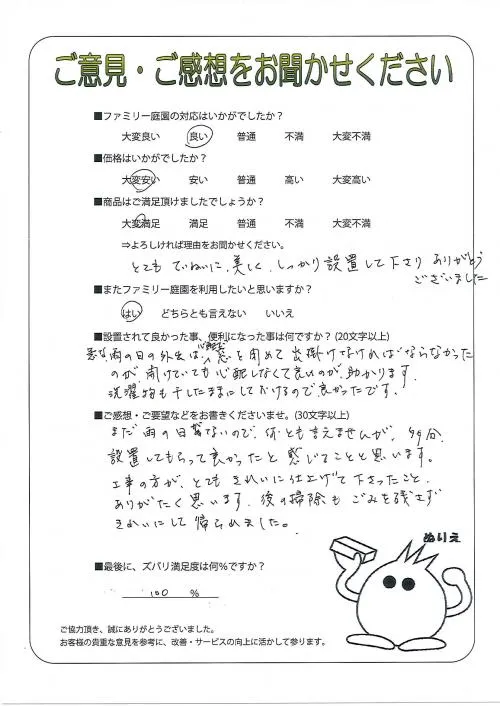 ご意見・ご感想をお聞かせください
■ファミリー庭園の対応はいかがでしたか？
大変良い 良い 普通 不満 大変不満
■価格はいかがでしたか？
大変安い 安い 普通 高い 大変高い
■商品はご満足頂けましたでしょうか？
大変満足 満足 普通 不満 大変不満
⇒よろしければ理由をお聞かせください。
とても ていねいに、美しく、しっかり設置して下さり ありがとう
ございました
■またファミリー庭園を利用したいと思いますか？
はい どちらとも言えない いいえ
■設置されて良かった事、便利になった事は何ですか？(20文字以上)
雨の日の外出は、窓を閉めて出掛けなければならなかった
のが、開けていても心配しなくて良いのが、助かります。
洗濯物も干したままにしておけるので良かったです。
■ご感想・ご要望などをお書きくださいませ。(30文字以上)
まだ雨の日がないので、何とも言えませんが、多分、
設置してもらって良かったと感じることと思います。
工事の方が、とてもきれいに仕上げて下さったこと、
ありがたく思います。後の掃除もごみを残さず
きれいにして帰られました。
ぬりえ
■最後に、ズバリ満足度は何％ですか？
100 ％
ご協力頂き、誠にありがとうございました。
お客様の貴重な意見を参考に、改善・サービスの向上に活かして参ります。